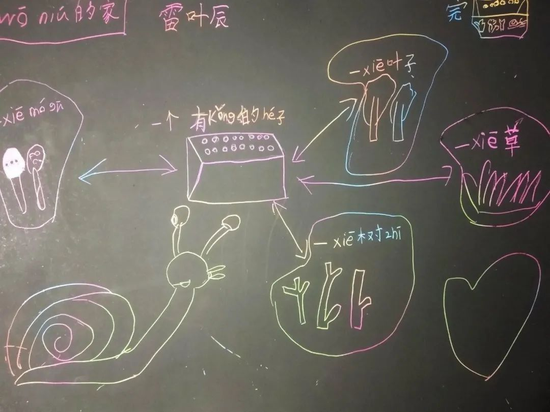 wō niú的家
雷叶辰
完
一xiē叶子
xiē mó gū
一个 有kǒng的hé子
一xiē草
一xiē树zhī